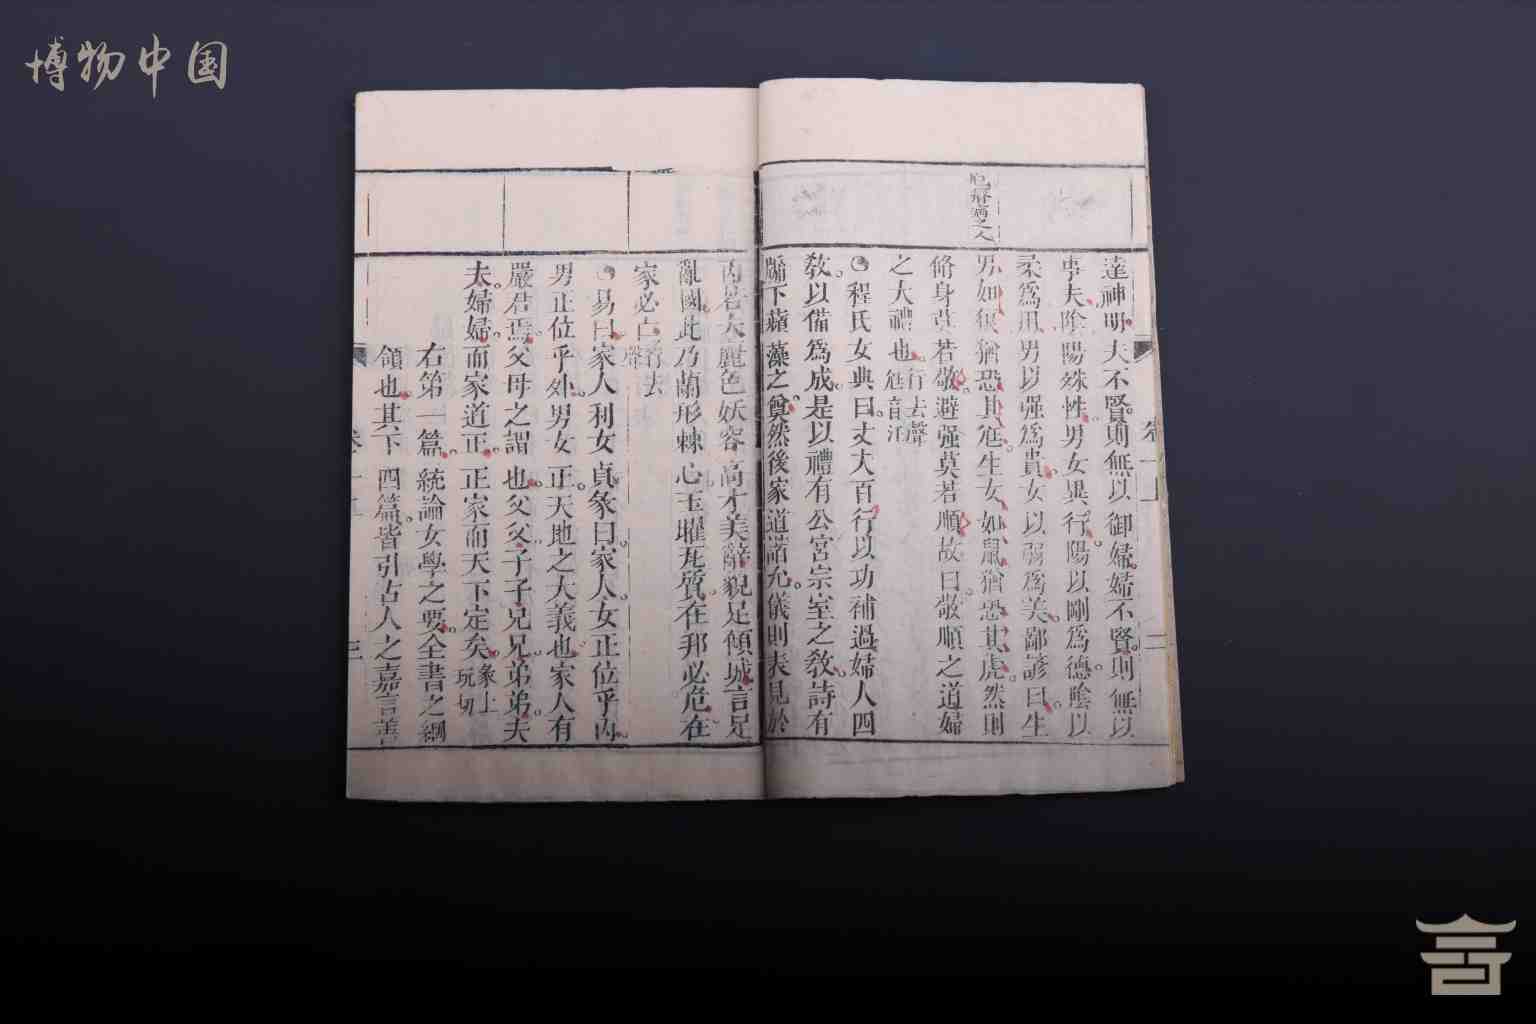 博物中国
尫瘠病之人
達神明夫不賢則無以御婦婦不賢則無以
事夫陰陽殊性男女異行陽以剛為德陰以
柔為用男以强為貴女以弱為美鄙諺曰生
男如狼猶恐其尫生女如鼠猶恐其虎然則
脩身莫若敬避强莫若順故曰敬順之道婦
之大禮也行去聲尫音汪
程氏女典曰丈夫百行以功補過婦人四
教以備為成是以禮有公宮宗室之教詩有
牖下蘋藻之奠然後家道諧允儀則表見於
內若夫麗色妖容高才美辭貌足傾城言足
亂國此乃蘭形棘心玉曜瓦質在邦必危在
家必亡行去聲
易曰家人利女貞彖曰家人女正位乎內
男正位乎外男女正天地之大義也家人有
嚴君焉父母之謂也父父子子兄兄弟弟夫
夫婦婦而家道正正家而天下定矣彖上玩切
右第一篇統論女學之要全書之綱
領也其下四篇皆引古人之嘉言善